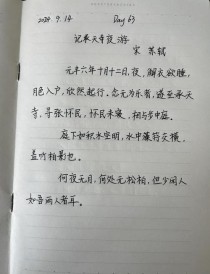 2024.9.14 Day 63
记承天寺夜游
宋 苏轼
元丰六年十月十二日,夜,解衣欲睡,
月色入户,欣然起行。念无与乐者,遂至承天
寺,寻张怀民,怀民未寝,相与步中庭。
庭下如积水空明,水中藻荇交横,
盖竹柏影也。
何夜无月,何处无松柏,但少闲人
如吾两人者耳。